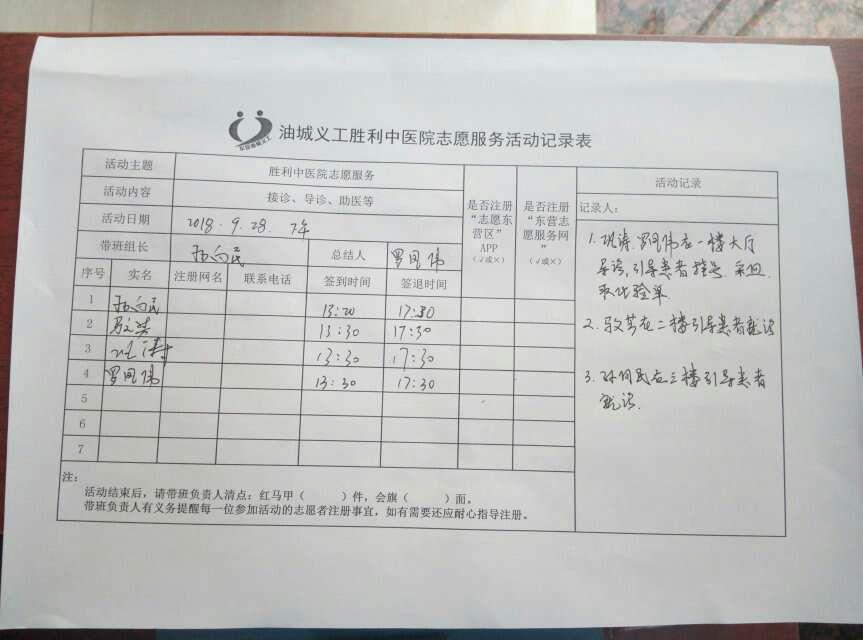 东营油城义工
油城义工胜利中医院志愿服务活动记录表
活动主题 胜利中医院志愿服务
活动内容 接诊、导诊、助医等
活动日期 2018.9.28. 下午
带班组长 孙向民 总结人 罗同伟
是否注册“志愿东营区”APP（√或×）
是否注册“东营志愿服务网”（√或×）
序号 实名 注册网名 联系电话 签到时间 签退时间
1 孙向民 13:20 17:30
2 13:30 17:30
3 13:30 17:30
4 罗同伟 13:30 17:30
5
6
7
活动记录
记录人：
1. 罗同伟在一楼大厅
导诊,引导患者挂号 采血
取化验单.
2. 在二楼引导患者就诊
3. 孙向民在三楼引导患者
就诊.
注：
活动结束后，请带班负责人清点：红马甲（ ）件，会旗（ ）面。
带班负责人有义务提醒每一位参加活动的志愿者注册事宜，如有需要还应耐心指导注册。